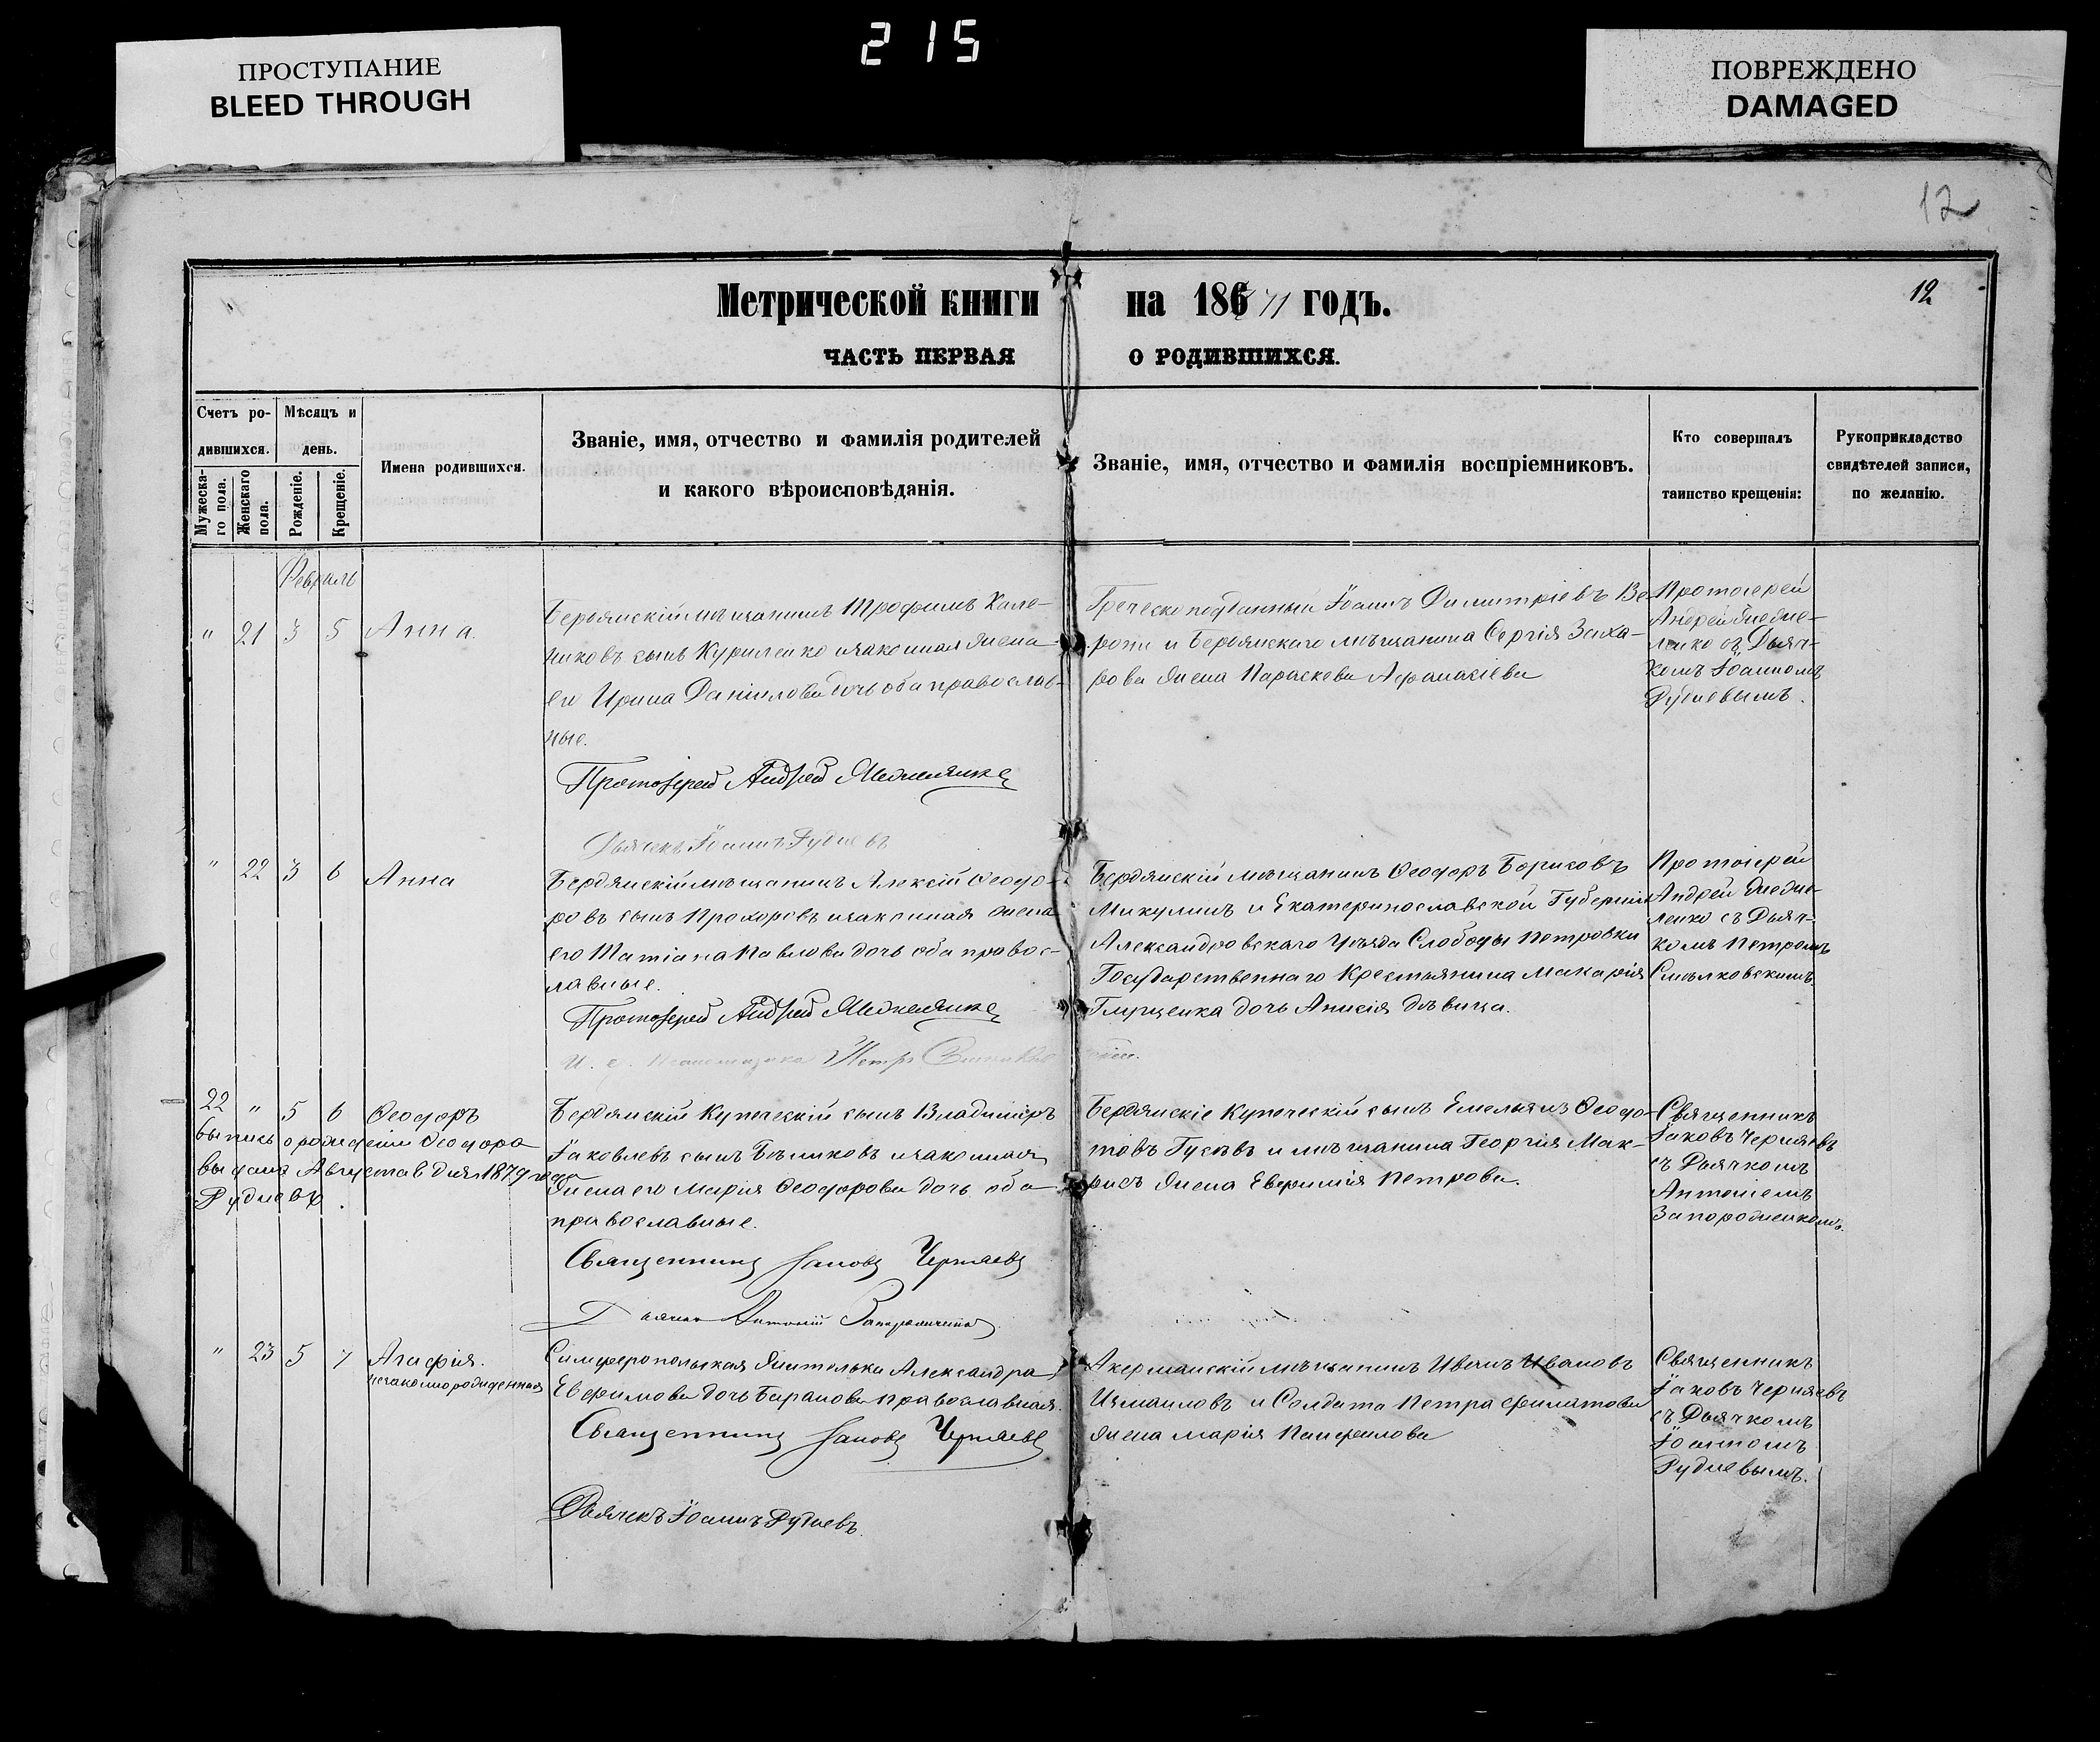 215
ПРОСТУПАНИЕ
BLEED THROUGH
ПОВРЕЖДЕНО
DAMAGED
12
12
Метрической книги на 1871 годъ.
ЧАСТЬ ПЕРВАЯ О РОДИВШИХСЯ.
Счетъ ро-
дившихся.
Мужеска-
го пола.
Женскаго
пола.
Мѣсяцъ и
день.
Рожденіе.
Крещеніе.
Имена родившихся.
Званіе, имя, отчество и фамилія родителей
и какого вѣроисповѣданія.
Званіе, имя, отчество и фамилія воспріемниковъ.
Кто совершалъ
таинство крещенія:
Рукоприкладство
свидѣтелей записи,
по желанію.
Февраль
" 21 3 5 Анна.
Бердянскій мѣщанинъ Трофимъ Кале-
никовъ сынъ Куриленко и законная жена
его Ирина Даніилова дочь оба православ-
ные.
Протоіерей Андрей
Дьячекъ Іоаннъ Рудневъ
Греческо подданный Іоаннъ Димитріевъ Ве-
роти и Бердянскаго мѣщанина Сергія Заха-
рова жена Параскева Афанасіева
Протоіерей
Андрей
ленко съ Дьяч-
комъ Іоанномъ
Рудневымъ.
" 22 3 6 Анна
Бердянскій мѣщанинъ Алексій Ѳеодо-
ровъ сынъ Прохоровъ и законная жена
его Татіана Павлова дочь оба правос-
лавные.
Протоіерей Андрей
И. д. Псаломщика Петръ
Бердянскій мѣщанинъ Ѳеодоръ Борисовъ
Микулинъ и Екатеринославской Губерніи
Александровскаго Уѣзда Слободы Петровки
Государственнаго Крестьянина Макарія
Глущенка дочь Анисія дѣвица.
Протоіерей
Андрей
ленко съ Дьяч-
комъ Петромъ
22 " 5 6 Ѳеодоръ
выпись о рожденіи Ѳеодора
выдана Августа 6 дня 1879 года
Рудневъ.
Бердянскій Купеческій сынъ Владиміръ
Іаковлевъ сынъ Бѣликовъ и законная
жена его Марія Ѳеодорова дочь оба
православные.
Священникъ Іаковъ Черняевъ
Дьячекъ Антоній Запорожченко
Бердянскіе Купеческій сынъ Емельянъ Ѳеодо-
товъ Гусевъ и мѣщанина Георгія Мак-
рисъ жена Евфимія Петрова.
Священникъ
Іаковъ Черняевъ
съ Дьячкомъ
Антоніемъ
Запорожченкомъ.
" 23 5 7 Агафія.
незаконнорожденная
Симферопольская жителька Александра
Евфимова дочь Баранова православная.
Священникъ Іаковъ Черняевъ
Дьячекъ Іоаннъ Рудневъ.
Акерманскій мѣщанинъ Иванъ Ивановъ
Измаиловъ и Солдата Петра Филатова
жена Марія Панфилова
Священникъ
Іаковъ Черняевъ
съ Дьячкомъ
Іоанномъ
Рудневымъ.